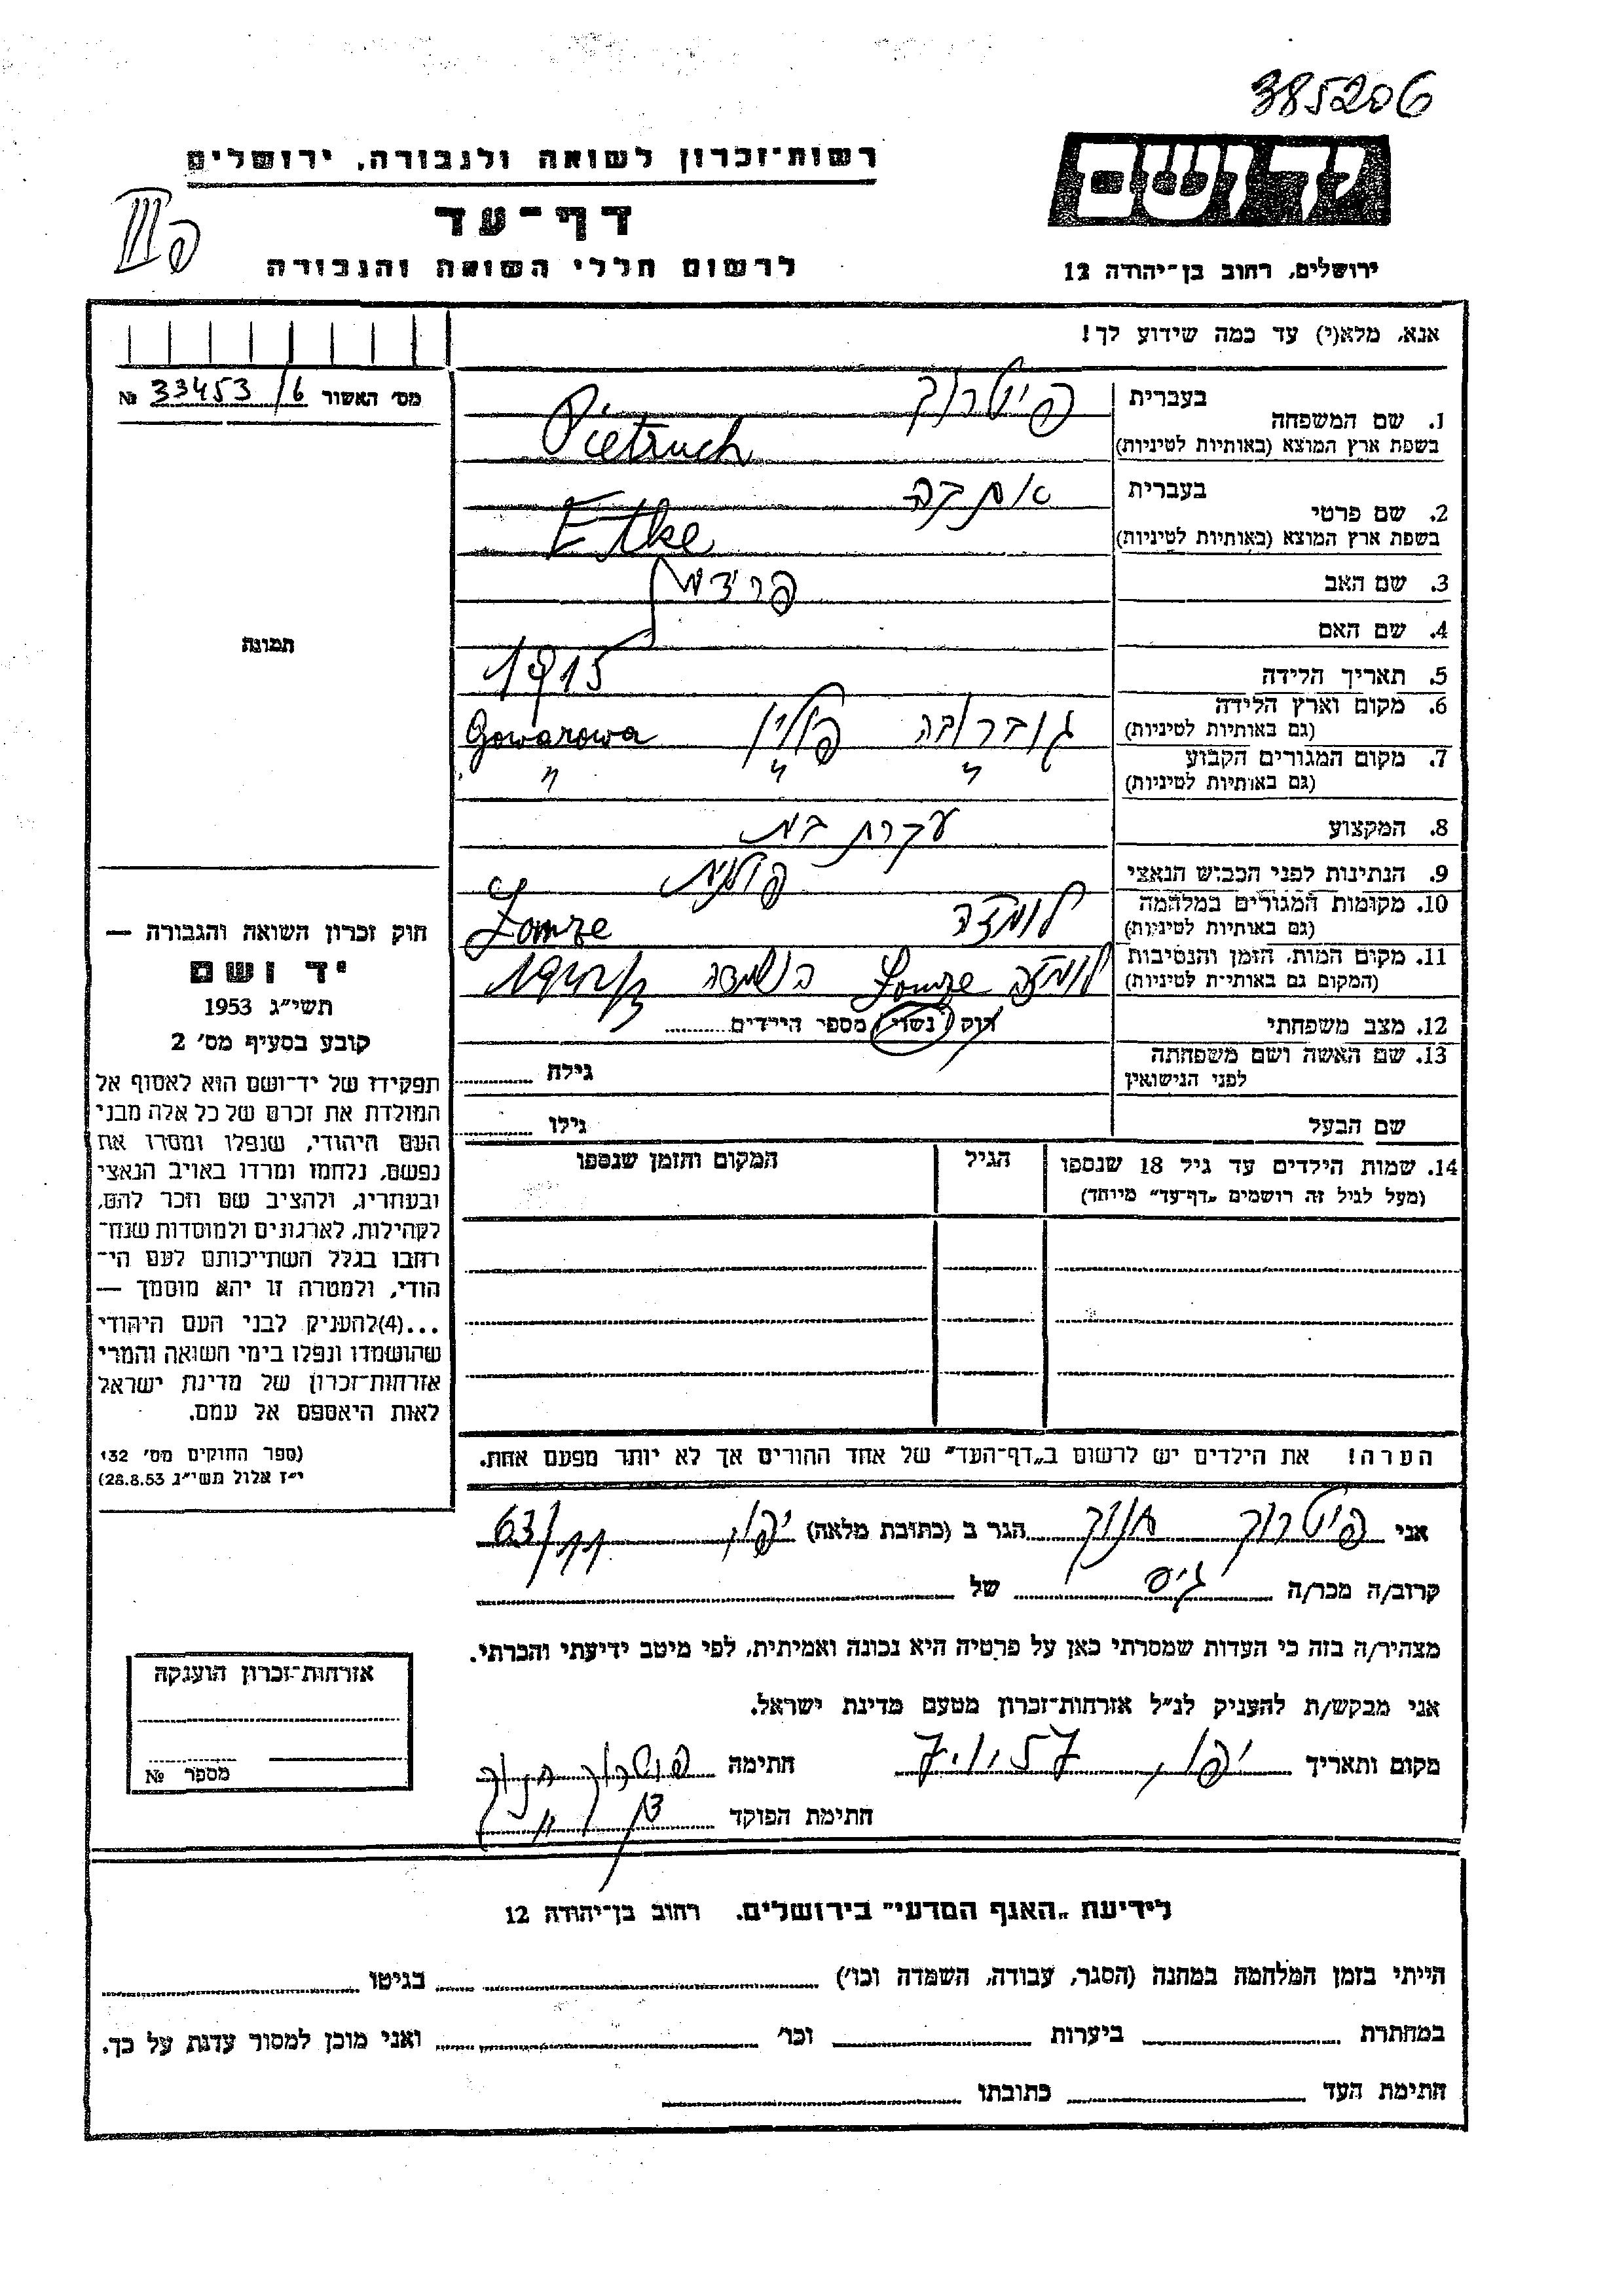 385206
יד ושם
רשות־זכרון לשואה ולגבורה, ירושלים
דף־עד
לרשום חללי השואה והגבורה
ירושלים, רחוב בן־יהודה 12
III
אנא, מלא(י) עד כמה שידוע לך!
מס׳ האשור 33453/6 №
תמונה
1. שם המשפחה בעברית פיטרוך
בשפת ארץ המוצא (באותיות לטיניות) Pietruch
2. שם פרטי בעברית אתקה
בשפת ארץ המוצא (באותיות לטיניות) Etke
3. שם האב
4. שם האם
5. תאריך הלידה 1915
6. מקום וארץ הלידה גוברובה פולין Gowarowa
(גם באותיות לטיניות)
7. מקום המגורים הקבוע " " "
(גם באותיות לטיניות)
8. המקצוע עקרת בית
9. הנתינות לפני הכבוש הנאצי פולנית
10. מקומות המגורים במלחמה לומזה Łomze
(גם באותיות לטיניות)
11. מקום המות, הזמן והנסיבות לומזה Lomze בהשמדה
(המקום גם באותיות לטיניות)
12. מצב משפחתי רוק (נשוי) מספר הילדים
13. שם האשה ושם משפחתה גילה
לפני הנישואין
שם הבעל גילו
14. שמות הילדים עד גיל 18 שנספו הגיל המקום והזמן שנספו
(מעל לגיל זה רושמים „דף־עד” מיוחד)
הערה! את הילדים יש לרשום ב„דף־העד” של אחד ההורים אך לא יותר מפעם אחת.
חוק זכרון השואה והגבורה —
יד ושם
תשי״ג 1953
קובע בסעיף מס׳ 2
תפקידו של יד־ושם הוא לאסוף אל
המולדת את זכרם של כל אלה מבני
העם היהודי, שנפלו ומסרו את
נפשם, נלחמו ומרדו באויב הנאצי
ובעוזריו, ולהציב שם וזכר להם,
לקהילות, לארגונים ולמוסדות שנח־
רבו בגלל השתייכותם לעם הי־
הודי, ולמטרה זו יהא מוסמך —
...(4)להעניק לבני העם היהודי
שהושמדו ונפלו בימי השואה והמרי
אזרחות־זכרון של מדינת ישראל
לאות היאספם אל עמם.
(ספר החוקים מס׳ 132
י״ז אלול תשי״ג 28.8.53)
אני פיטרוך חנוך הגר ב (כתובת מלאה) יפו,
קרוב/ה מכר/ה גיס של
מצהיר/ה בזה כי העדות שמסרתי כאן על פרטיה היא נכונה ואמיתית, לפי מיטב ידיעתי והכרתי.
אני מבקש/ת להעניק לנ״ל אזרחות־זכרון מטעם מדינת ישראל.
מקום ותאריך יפו, חתימה פיטרוך חנוך
חתימת הפוקד
אזרחות־זכרון הוענקה
מספר №
לידיעת „האגף המדעי” בירושלים, רחוב בן־יהודה 12
הייתי בזמן המלחמה במחנה (הסגר, עבודה, השמדה וכו׳) בגיטו
במחתרת ביערות וכו׳ ואני מוכן למסור עדות על כך.
חתימת העד כתובתו